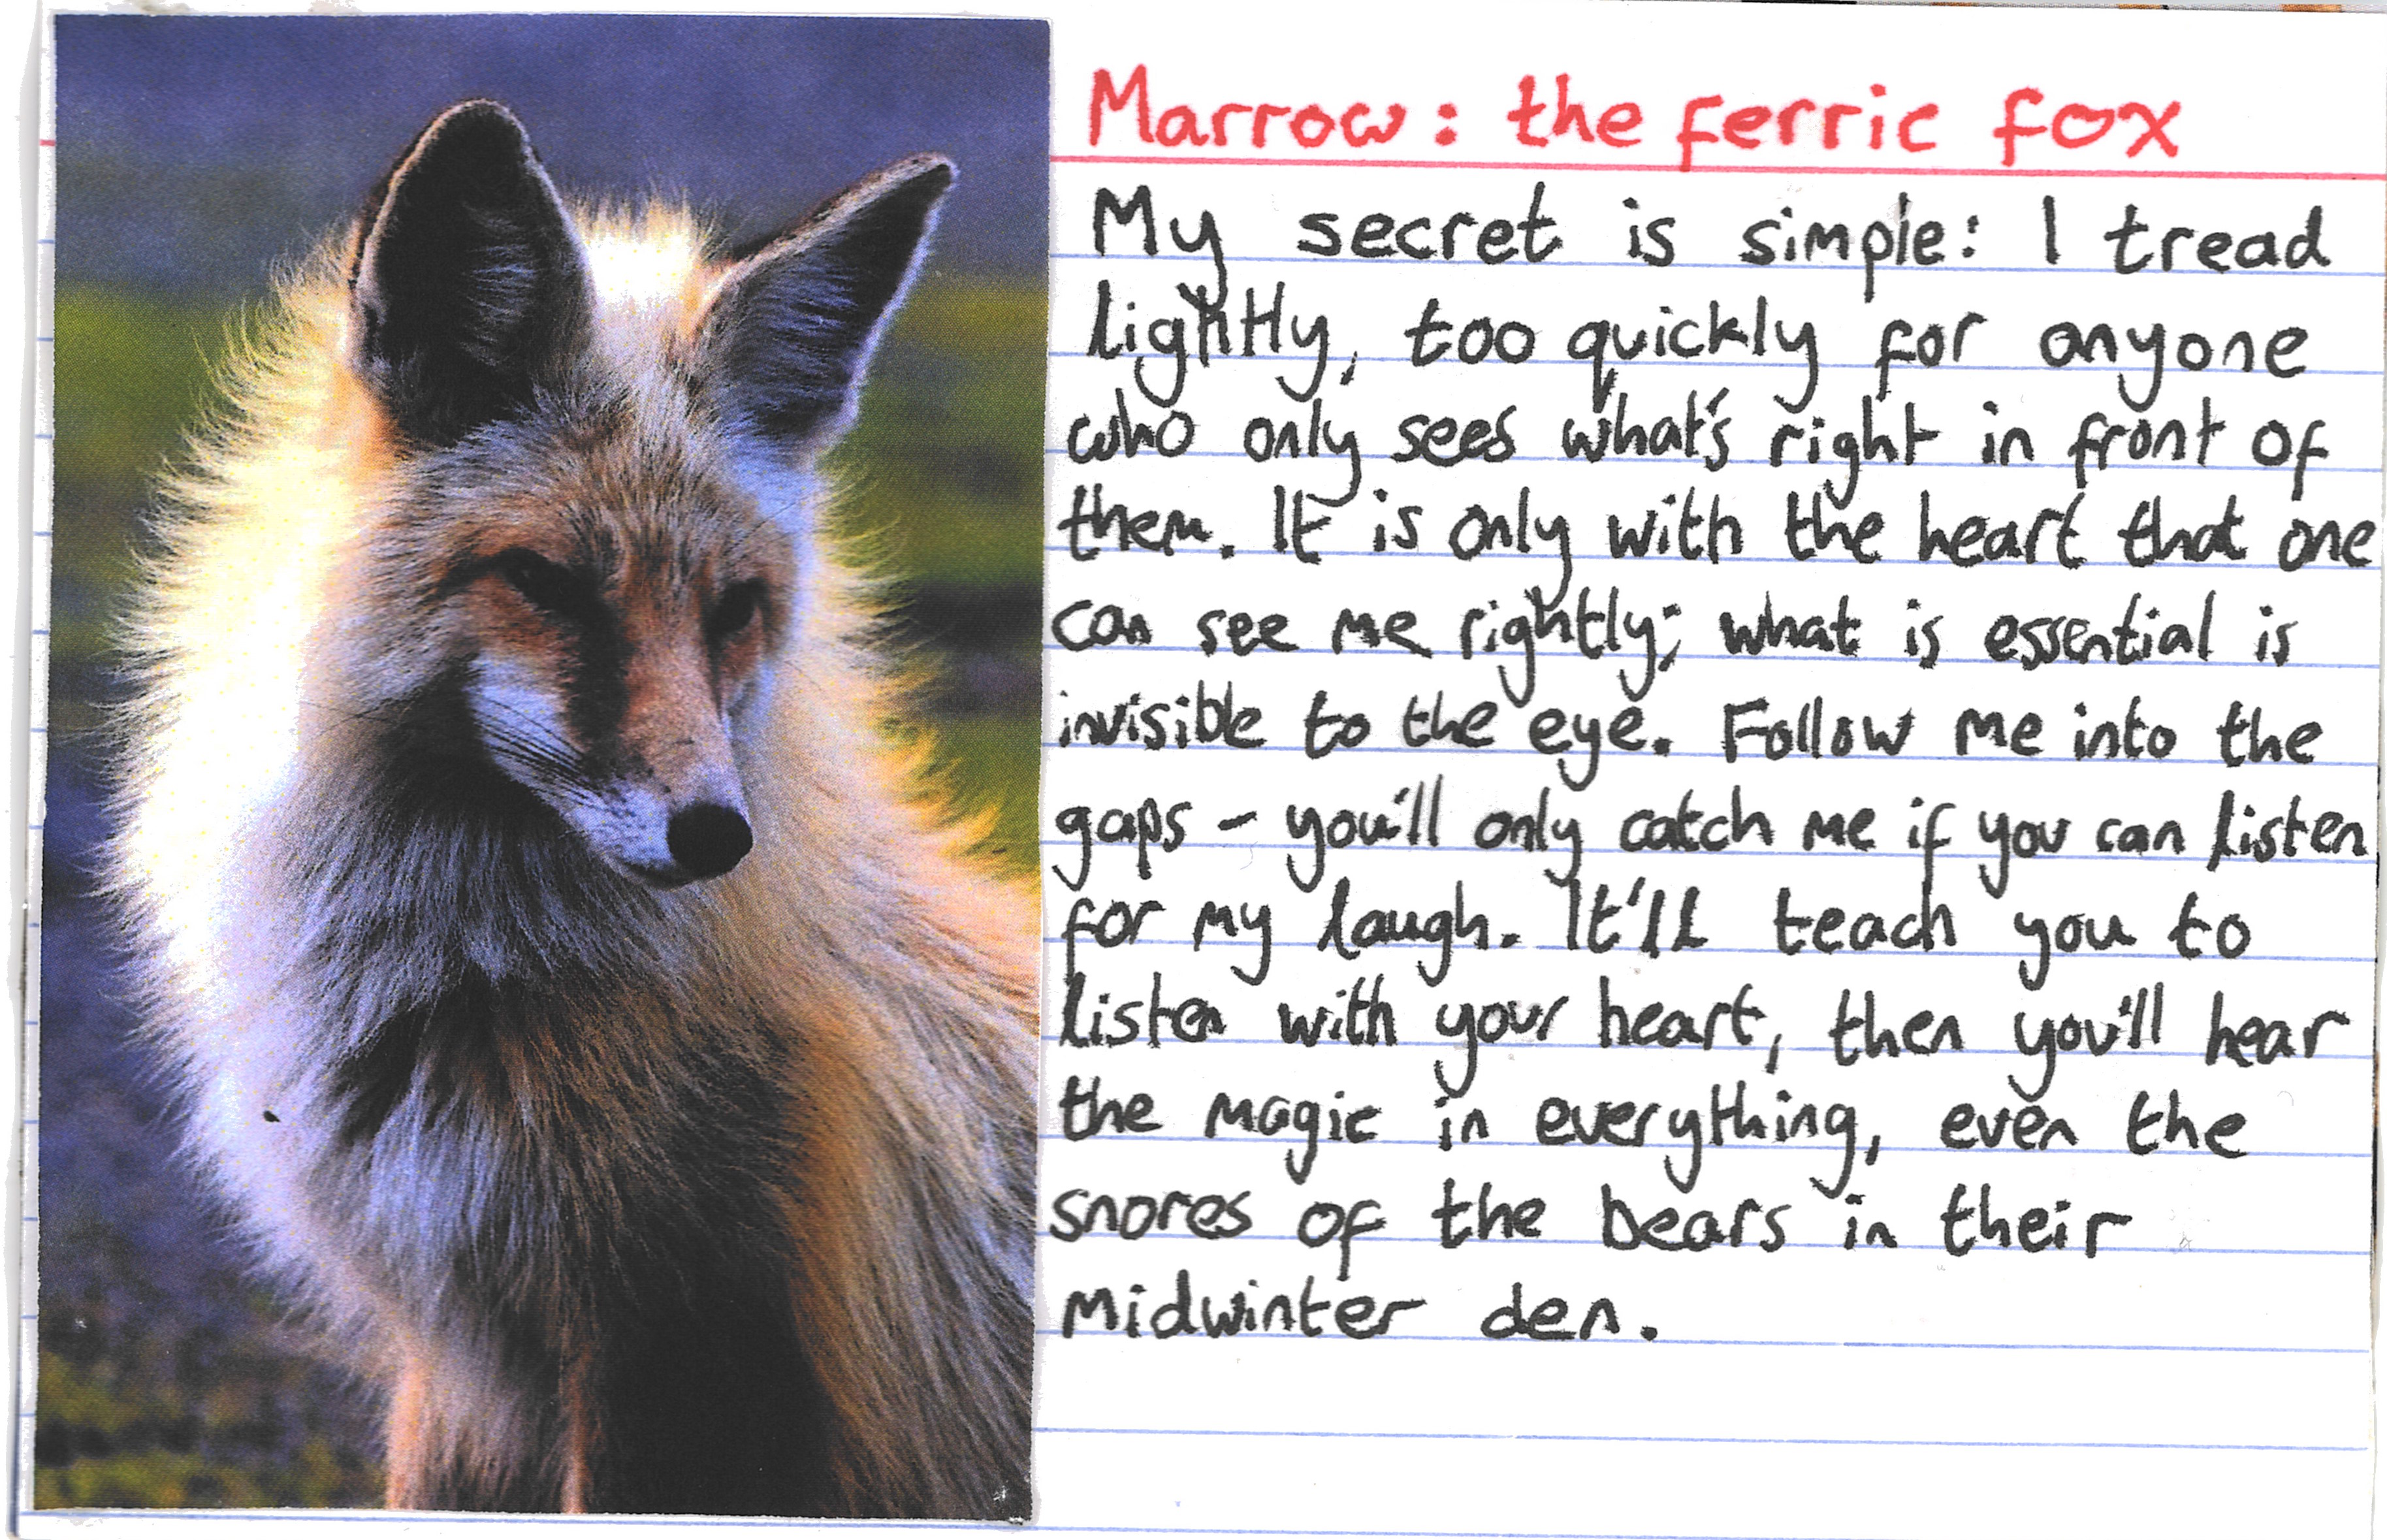 Marrow: the ferric fox
My secret is simple: I tread
lightly, too quickly for anyone
who only sees what's right in front of
them. It is only with the heart that one
can see me rightly; what is essential is
invisible to the eye. Follow me into the
gaps - you'll only catch me if you can listen
for my laugh. It'll teach you to
listen with your heart, then you'll hear
the magic in everything, even the
snores of the bears in their
midwinter den.